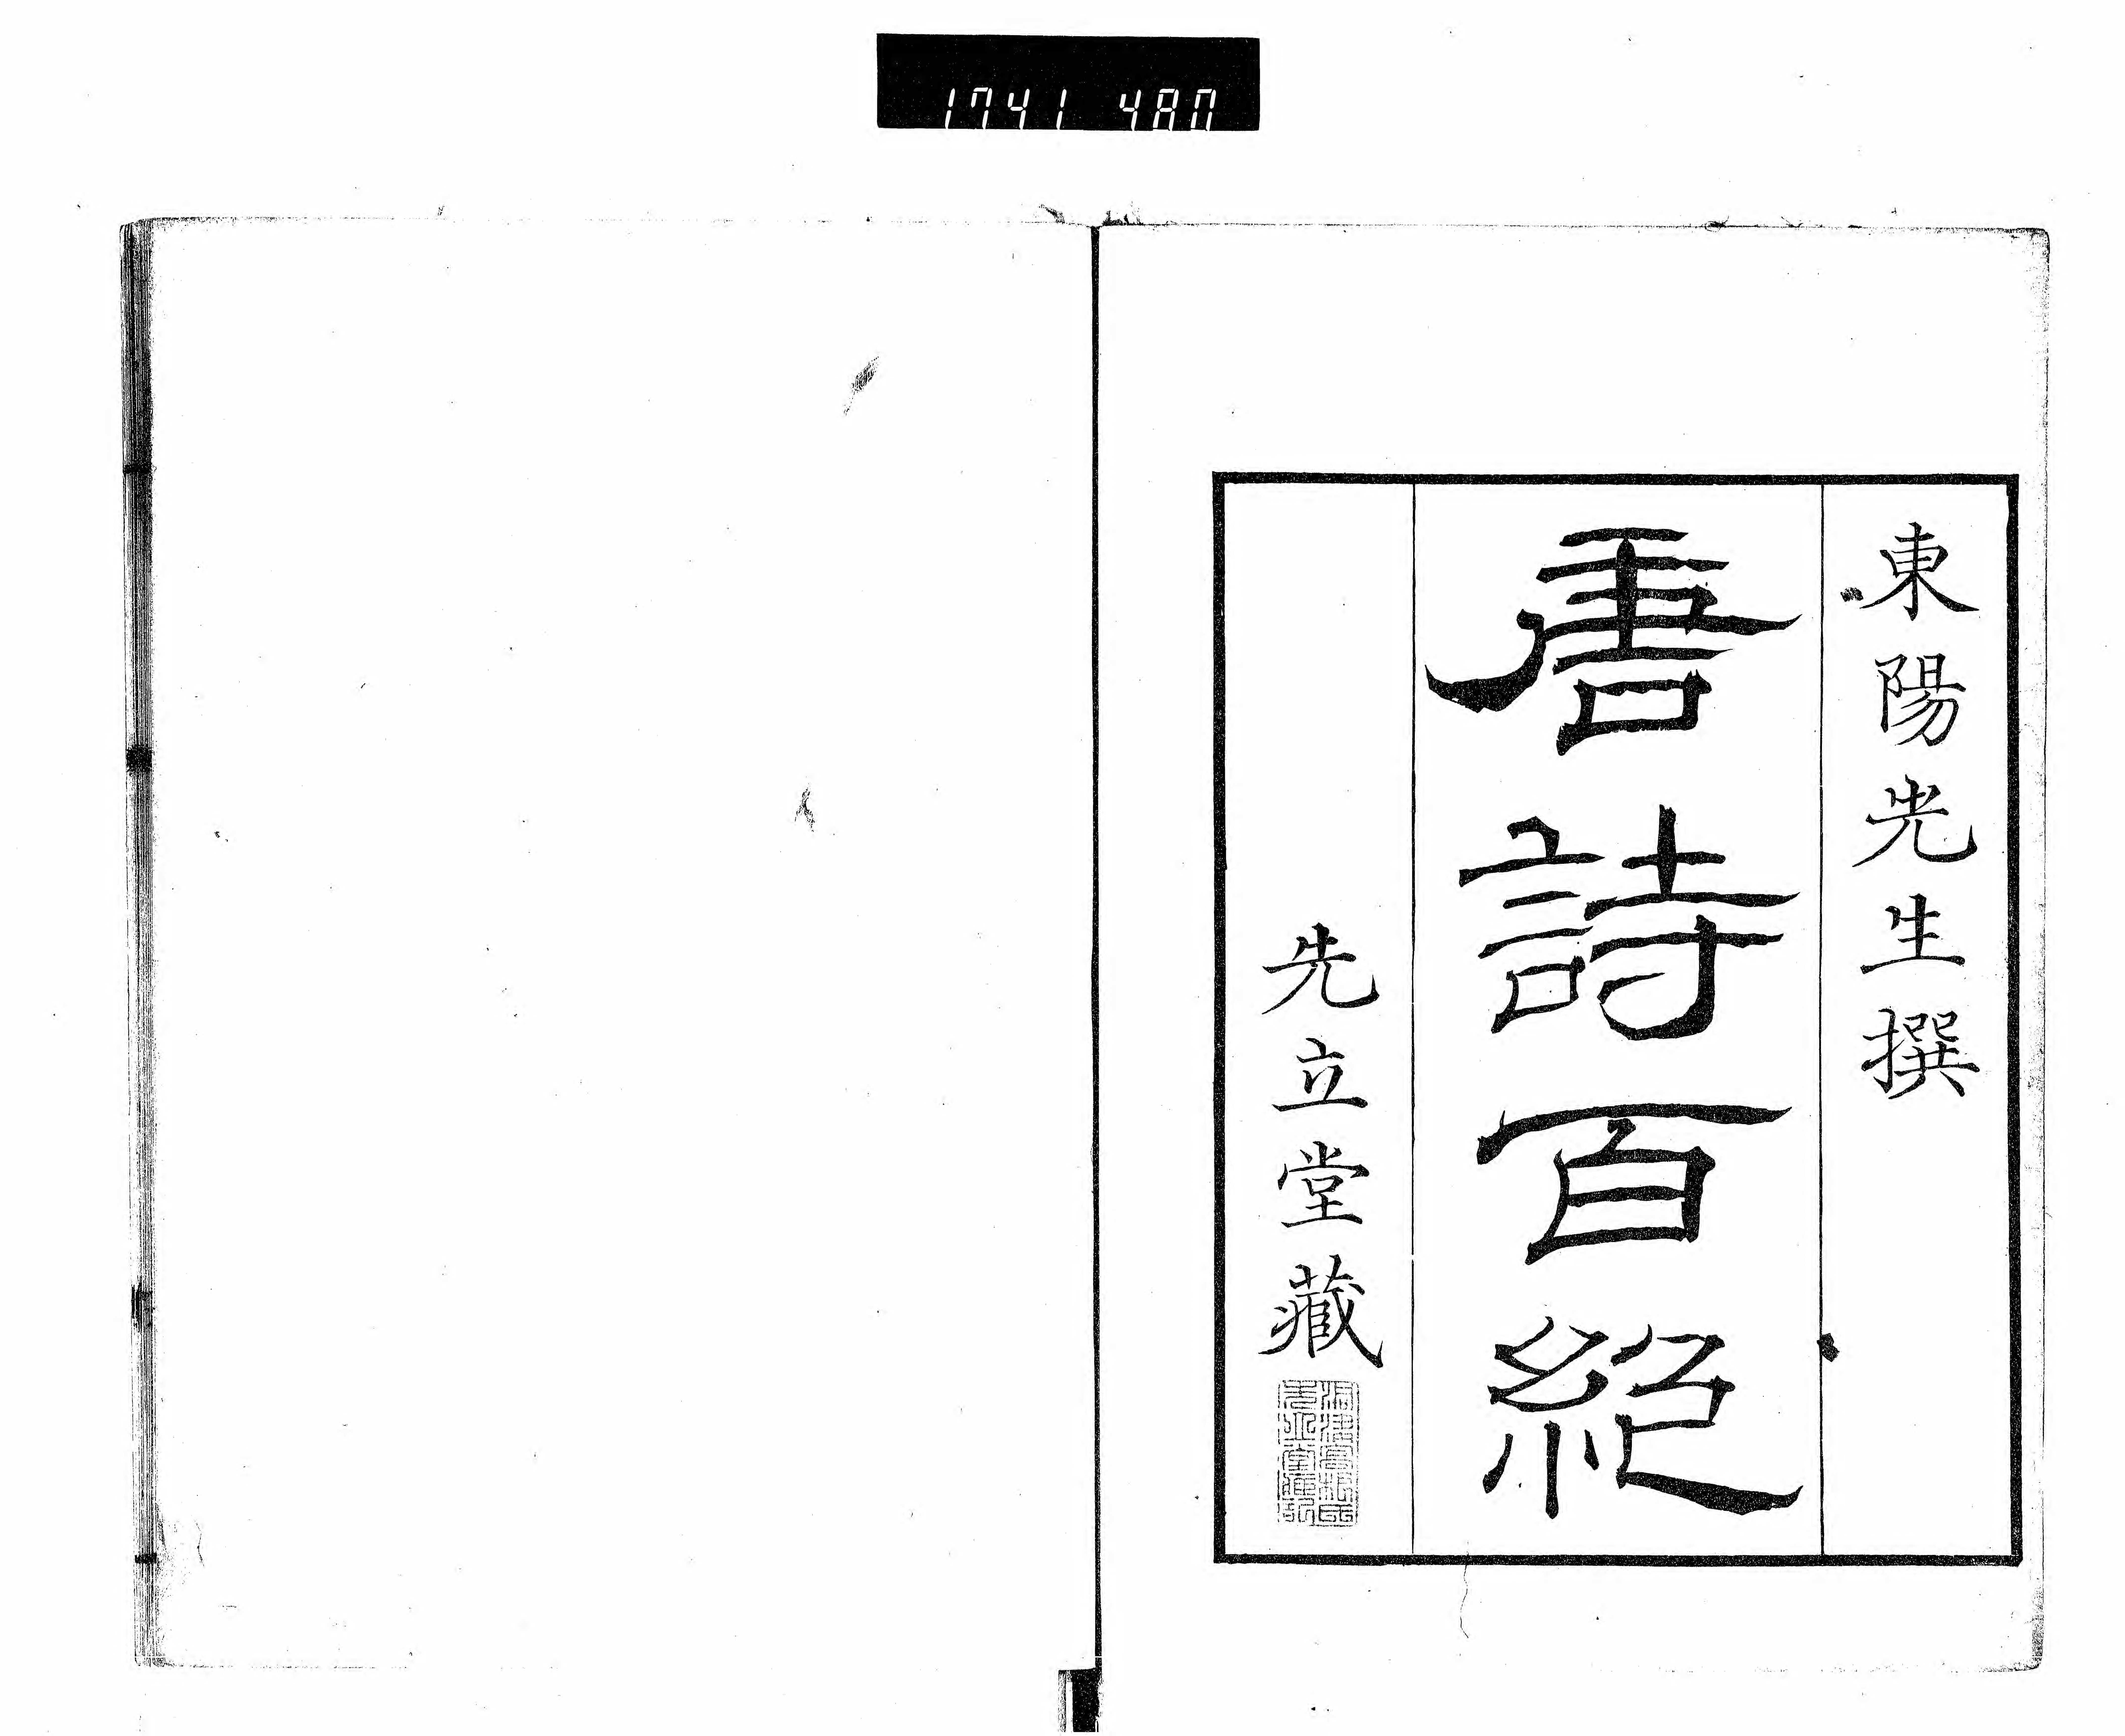 1741 480
東陽先生撰
唐詩百絶
先立堂藏